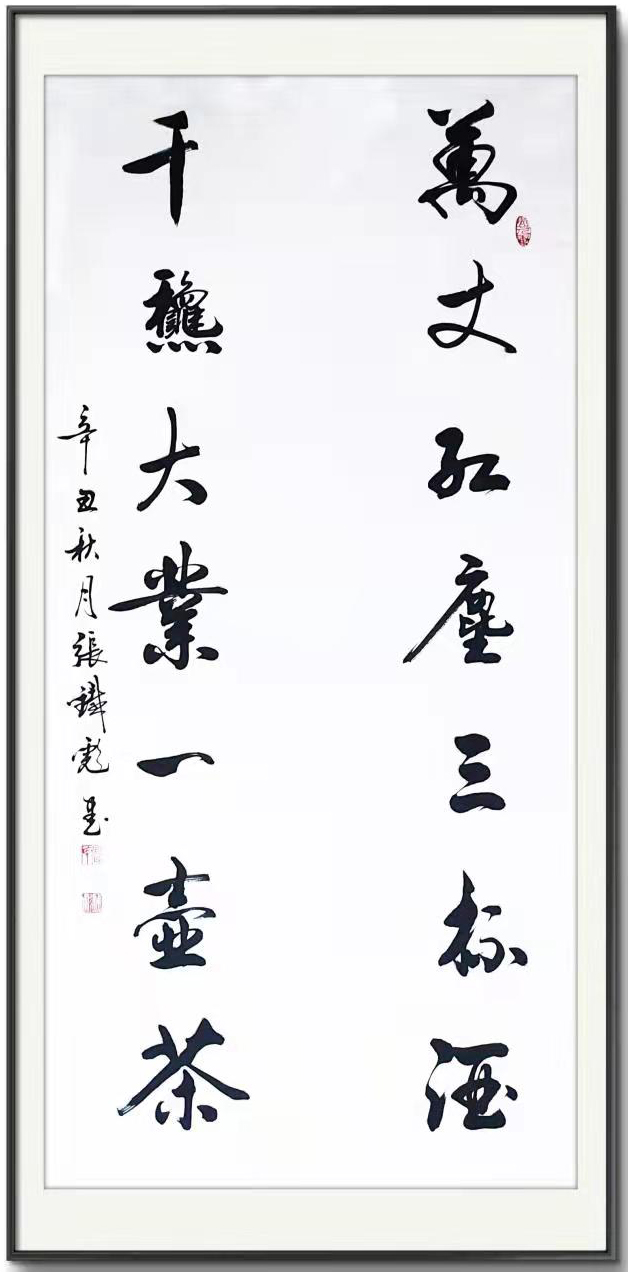 萬丈红塵三杯酒
千龝大業一壺茶
辛丑秋月張鐵彪書